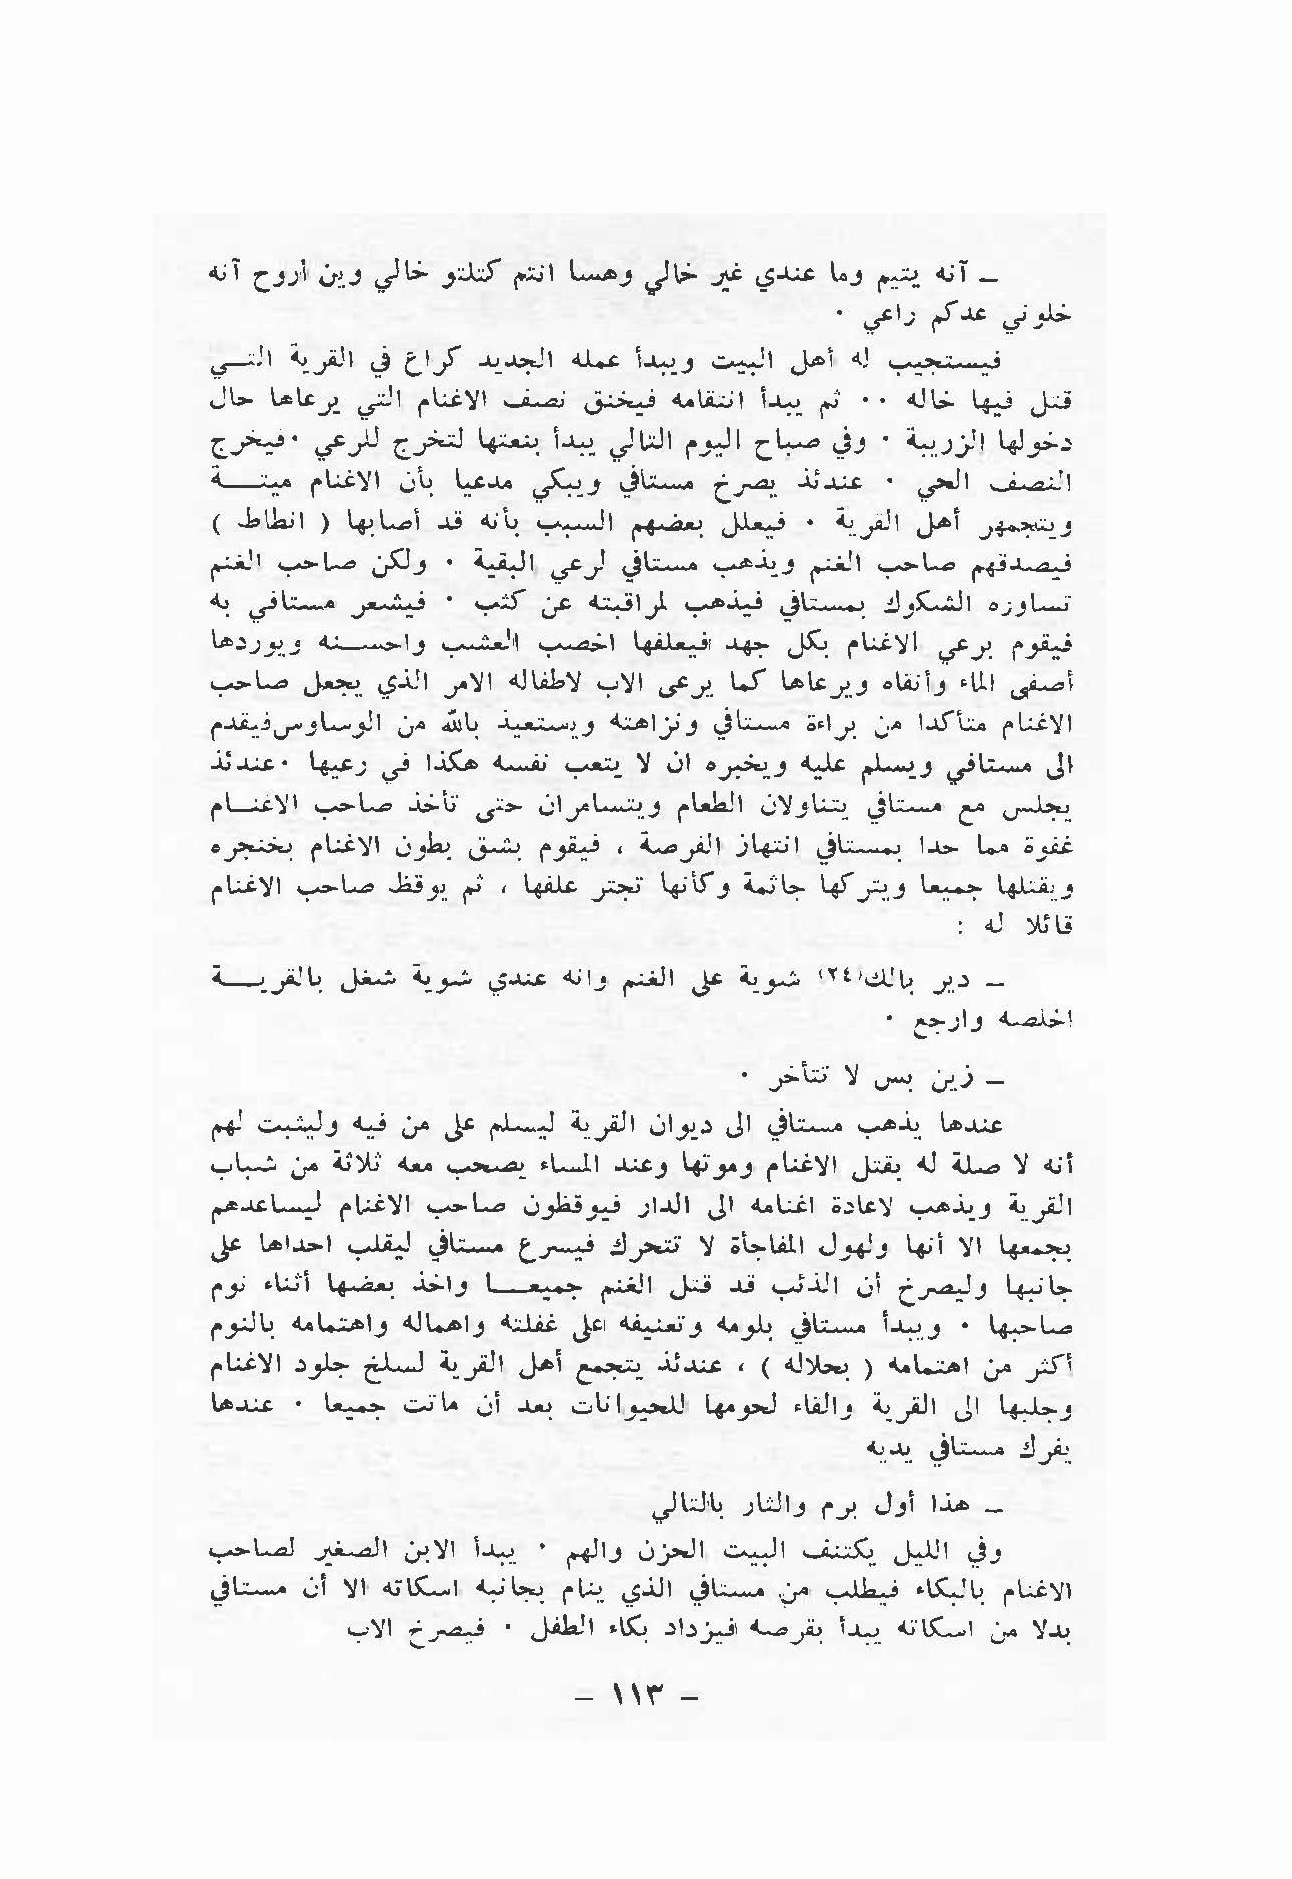 – آنه يتيم وما عندي غير خالي وهسا انتم كتلتو خالي وين اروح آنه
خلوني عدكم راعي ٠
فيستجيب له أهل البيت ويبدأ عمله الجديد كراع في القرية التـــي
قتل فيها خاله ٠٠ ثم يبدأ انتقامه فيخنق نصف الاغنام التي يرعاها حال
دخولها الزريبة ٠ وفي صباح اليوم التالي يبدأ بنعتها لتخرج للرعي ٠فيخرج
النصف الحي ٠ عندئذ يصرخ مستافي ويبكي مدعيا بأن الاغنام ميتـــة
ويتجمهر أهل القرية ٠ فيعلل بعضهم السبب بأنه قد أصابها ( انطاط )
فيصدقهم صاحب الغنم ويذهب مستافي لرعي البقية ٠ ولكن صاحب الغنم
تساوره الشكوك بمستافي فيذهب لمراقبته عن كثب ٠ فيشعر مستافي به
فيقوم برعي الاغنام بكل جهد فيعلفها اخصب العشب واحســـنه ويوردها
أصفى الماء وأنقاه ويرعاها كما يرعى الاب لاطفاله الامر الذي يجعل صاحب
الاغنام متأكدا من براءة مستافي ونزاهته ويستعيذ بالله من الوساوس فيقدم
الى مستافي ويسلم عليه ويخبره ان لا يتعب نفسه هكذا في رعيها ٠عندئذ
يجلس مع مستافي يتناولان الطعام ويتسامران حتى تأخذ صاحب الاغنـام
غفوة مما حدا بمستافي انتهاز الفرصة ، فيقوم بشق بطون الاغنام بخنجره
ويقتلها جميعا ويتركها جاثمة وكأنها تجتر علفها ، ثم يوقظ صاحب الاغنام
قائلا له :
– دير بالك(٢٤) شوية على الغنم وانه عندي شوية شغل بالقريـــة
اخلصه وارجع ٠
– زين بس لا تتأخر ٠
عندها يذهب مستافي الى ديوان القرية ليسلم على من فيه وليثبت لهم
أنه لا صلة له بقتل الاغنام وموتها وعند المساء يصحب معه ثلاثة من شباب
القرية ويذهب لاعادة اغنامه الى الدار فيوقظون صاحب الاغنام ليساعدهم
بجمعها الا أنها ولهول المفاجأة لا تتحرك فيسرع مستافي ليقلب احداها على
جانبها وليصرخ أن الذئب قد قتل الغنم جميعـــا واخذ بعضها أثناء نوم
صاحبها ٠ ويبدأ مستافي بلومه وتعنيفه على غفلته واهماله واهتمامه بالنوم
أكثر من اهتمامه ( بحلاله ) ، عندئذ يتجمع أهل القرية لسلخ جلود الاغنام
وجلبها الى القرية والقاء لحومها للحيوانات بعد أن ماتت جميعا ٠ عندها
يفرك مستافي يديه
– هذا أول برم والثار بالتالي
وفي الليل يكتنف البيت الحزن والهم ٠ يبدأ الابن الصغير لصاحب
الاغنام بالبكاء فيطلب من مستافي الذي ينام بجانبه اسكاته الا أن مستافي
بدلا من اسكاته يبدأ بقرصه فيزداد بكاء الطفل ٠ فيصرخ الاب
– ١١٣ –